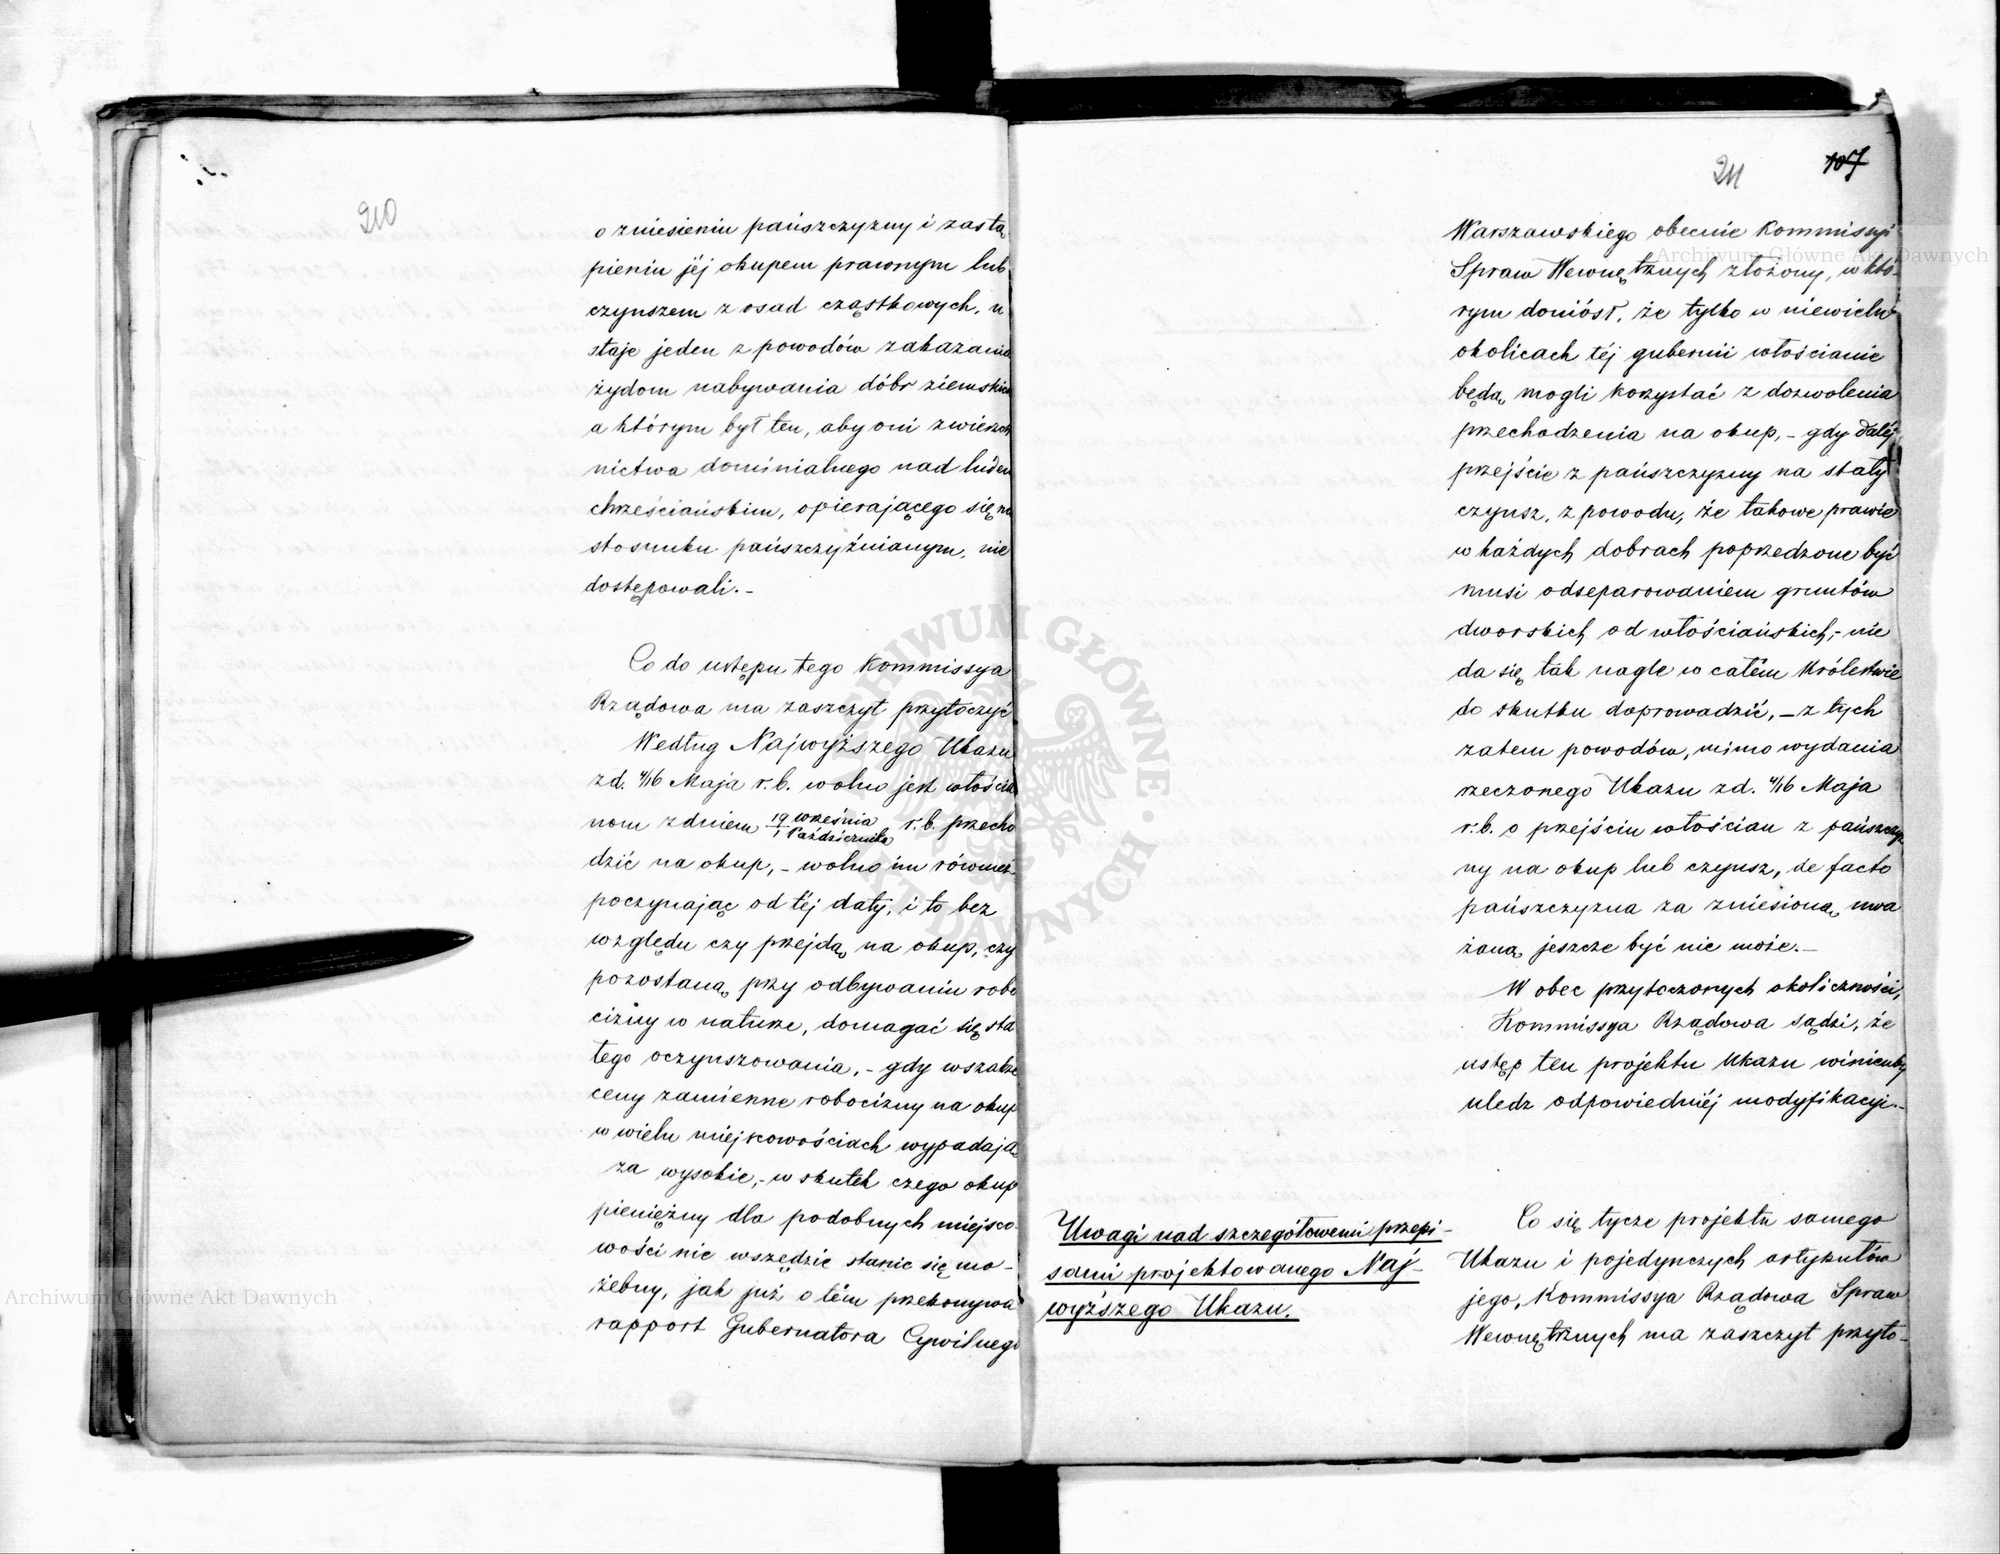 210
o zniesieniu pańszczyzny i zastą
pieniu jéj okupem prawnym lub
czynszem z osad cząstkowych, u
staje jeden z powodów zakazania
żydom nabywania dóbr ziemskich
a którym był ten, aby oni zwierzch
nictwa dominialnego nad ludem
chrześciańskim, opierającego się na
stosunku pańszczyźnianym, nie
dostępowali.-
Co do ustępu tego Kommissya
Rządowa ma zaszczyt przytoczyć
Według Najwyższego Ukazu
z d. 4/16 Maja r. b. wolno jest włościa
nom z dniem 19 Września / 1 Października r. b. przecho
dzić na okup, - wolno im również
poczynając od téj daty, i to bez
względu czy przejdą na okup, czy
pozostaną przy odbywaniu robo
cizny w naturze, domagać się sta
łego oczynszowania, - gdy wszakże
ceny zamienne robocizny na okup
w wielu miejscowościach wypadają
za wysokie, - w skutek czego okup
pieniężny dla podobnych miejsco
wości nie wszędzie stanie się mo-
żebny, jak już o tém przekonywa
rapport Gubernatora Cywilnego
211
107
Warszawskiego obecnie Kommissyi
Spraw Wewnętrznych złożony, w któ-
rym doniósł, że tylko w niewielu
okolicach téj gubernii włościanie
będą mogli korzystać z dozwolenia
przechodzenia na okup, - gdy daléj
przejście z pańszczyzny na stały
czynsz, z powodu, że takowe prawie
w każdych dobrach poprzedzone być
musi odseparowaniem gruntów
dworskich od włościańskich, - nie
da się tak nagle w całém Królestwie
do skutku doprowadzić, - z tych
zatem powodów, mimo wydania
rzeczonego Ukazu z d. 4/16 Maja
r. b. o przejściu włościan z pańszczyz
ny na okup lub czynsz, de facto
pańszczyzna za zniesioną uwa
żaną jeszcze być nie może. -
W obec przytoczonych okoliczności,
Kommissya Rządowa sądzi, że
ustęp ten projektu Ukazu winienby
uledz odpowiedniéj modyfikacyi. -
Uwagi nad szczegółowemi przepi-
sami projektowanego Naj-
wyższego Ukazu.
Co się tycze projektu samego
Ukazu i pojedynczych artykułów
jego, Kommissya Rządowa Spraw
Wewnętrznych ma zaszczyt przyto-
Archiwum Główne Akt Dawnych
Archiwum Główne Akt Dawnych
ARCHIWUM GŁÓWNE AKT DAWNYCH